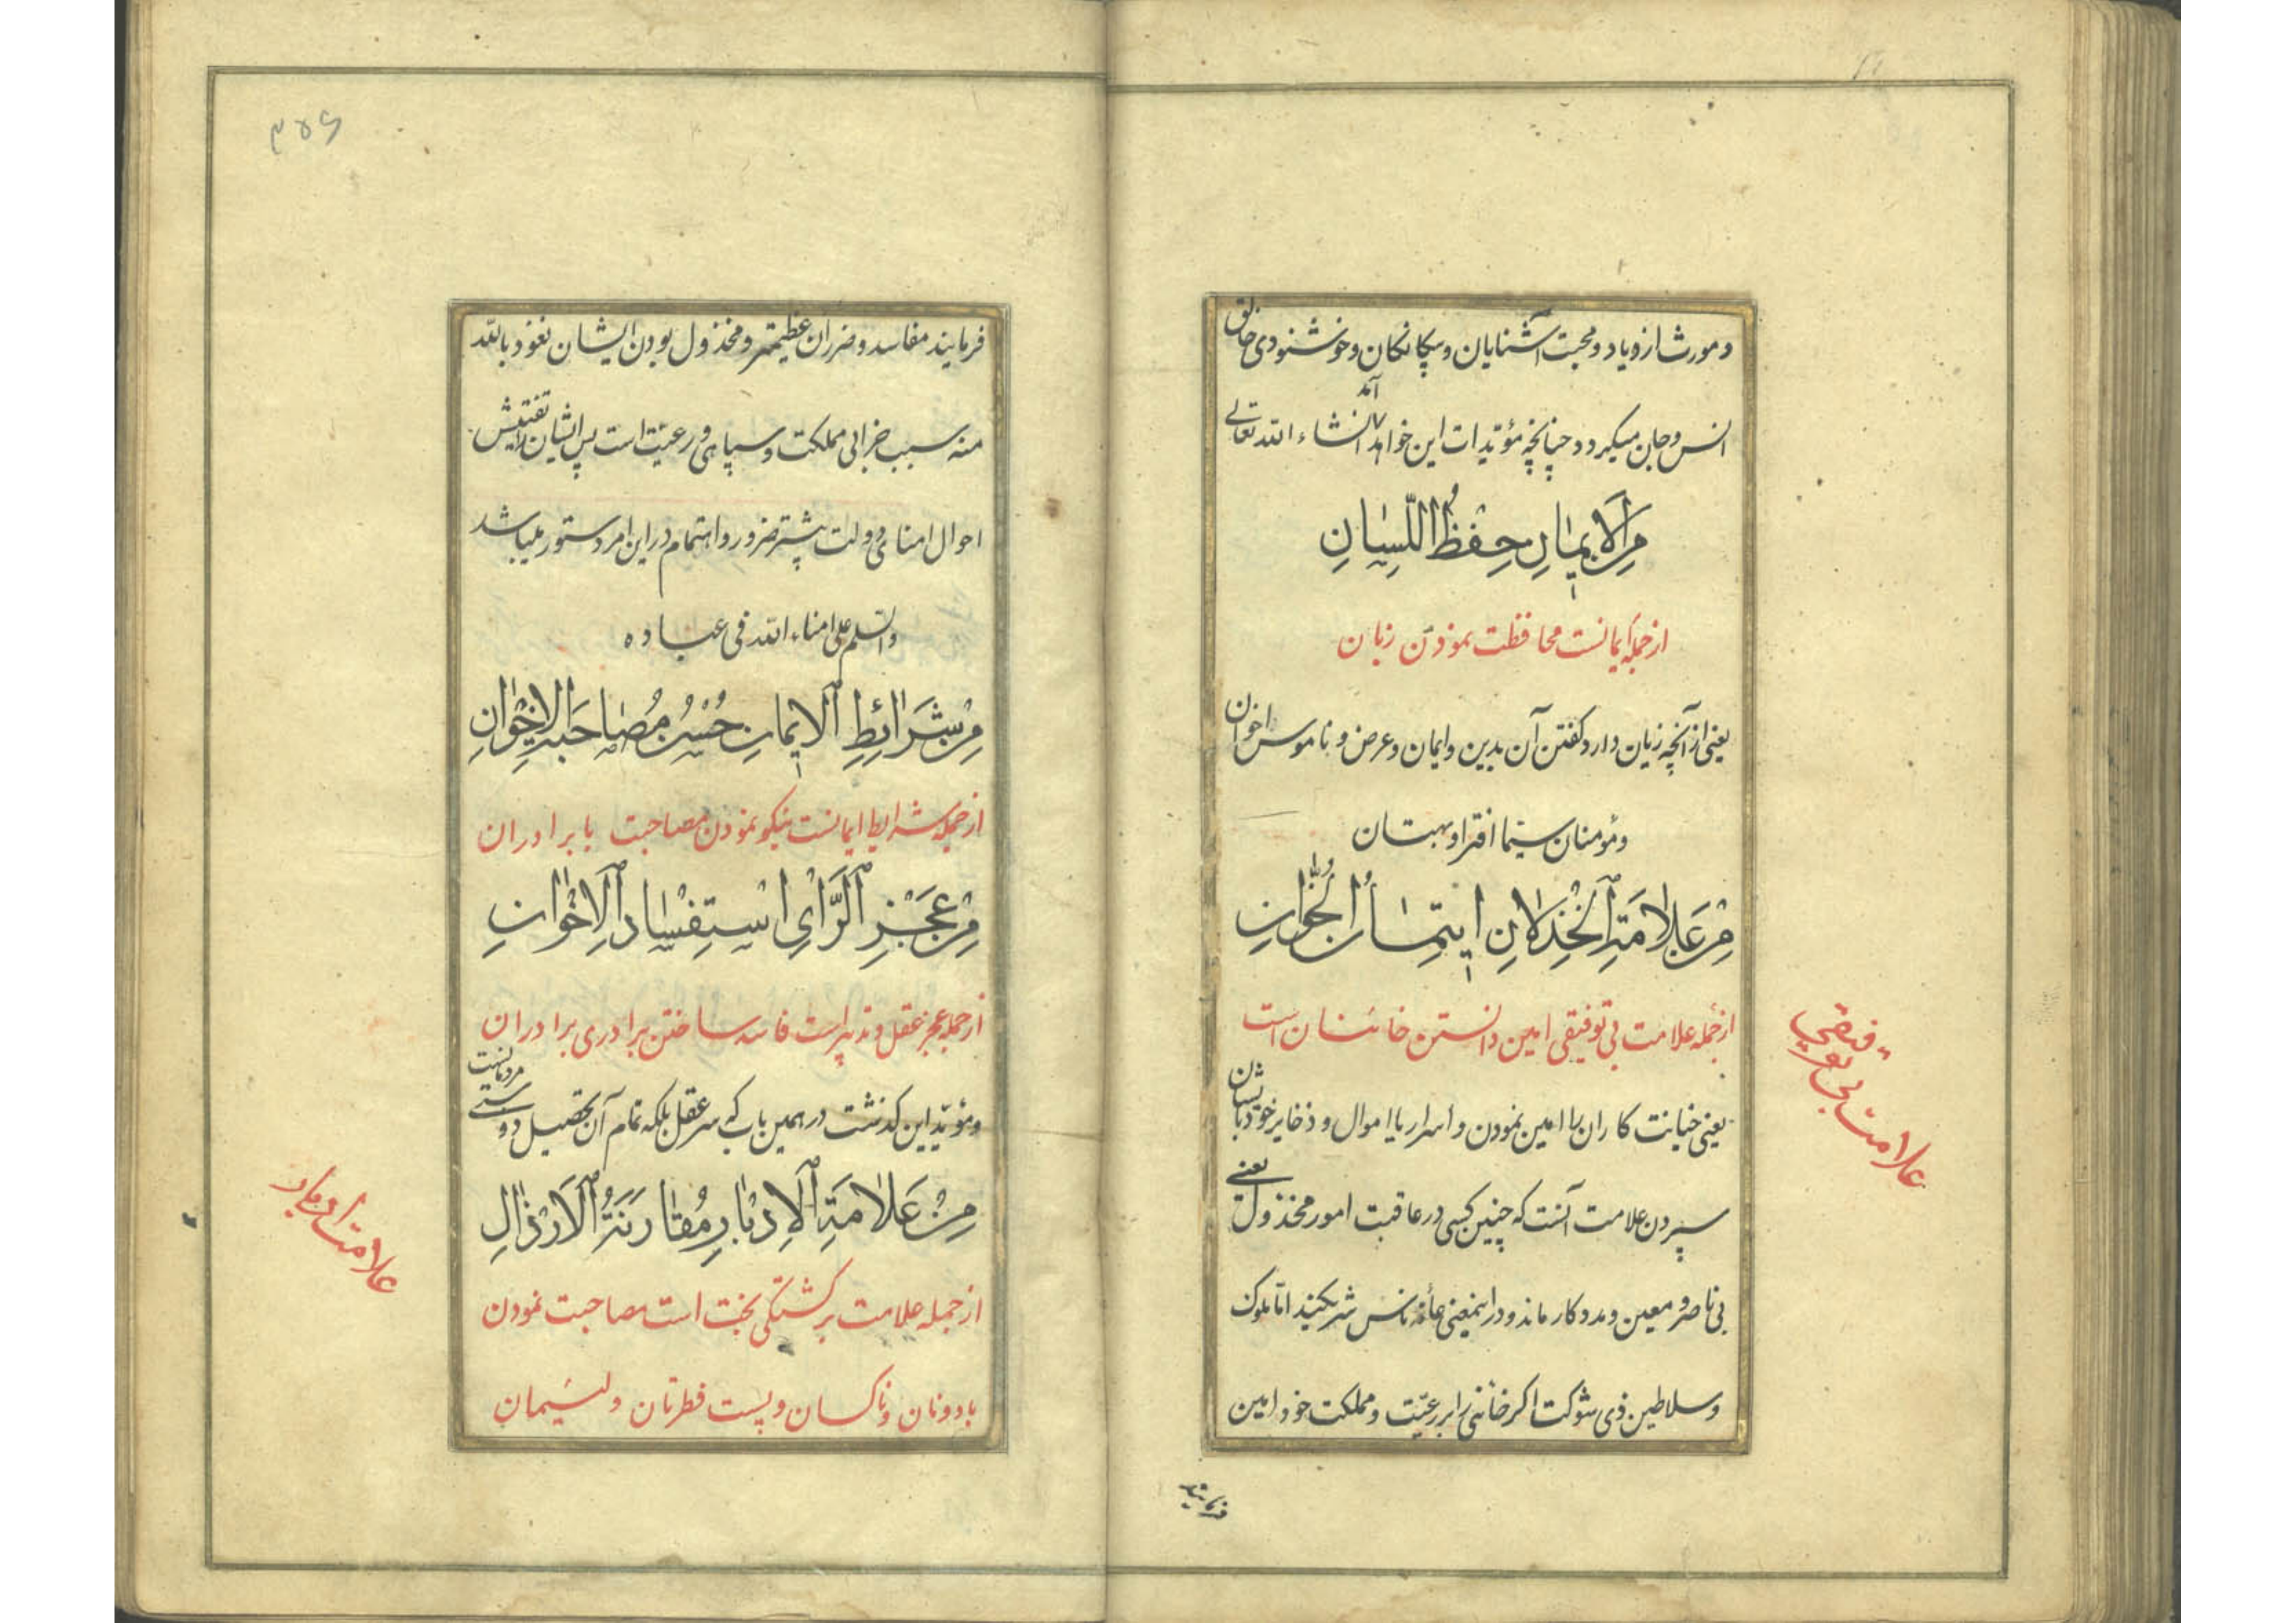 و مورث ازدیاد و محبت آشنایان و بیکانکان و خوشنودی خالق
انس و جان میکردد چنانچه مؤیدات این خواهد آمد انشاء الله تعالی
مِنَ الْاِیمٰانِ حِفْظُ اللِّسٰانِ
از جمله ایمانست محافظت نمودن زبان
یعنی از آنچه زیان دارد کفتن آن بدین و ایمان و عرض و ناموس اخوان
و مؤمنان سیما افترا و بهتان
مِنْ عَلاٰمَةِ الْخِذْلاٰنِ ایتِمٰانُ الْخُوّٰانِ
از جمله علامت بی توفیقی امین دانستن خائنان است
یعنی خیانت کاران را امین نمودن و اسرار یا اموال و ذخایر خود بایشان
سپردن علامت آنست که چنین کسی در عاقبت امور مخذول یعنی
بی ناصر و معین و مددکار ماند و در اینمعنی عامه ناس شریکند اما ملوک
و سلاطین ذی شوکت اکر خائنی را بر رعیّت و مملکت خود امین
علامت بی توفیقی
فرمایند
۳۵۶
فرمایند مفاسد و ضرر ان عظیمتر و مخذول بودن ایشان نعوذ بالله
منه سبب خرابی مملکت و سپاهی و رعیّت است پس ایشانرا تفتیش
احوال امنای دولت بیشتر ضرور و اهتمام در این امر دستور میباشد
والسلم علی امناء الله فی عباده
مِنْ شَرٰائِطِ الْایمٰانِ حُسْنُ مُصٰاحَبَةِ الْاِخْوٰانِ
از جمله شرایط ایمانست نیکو نمودن مصاحبت با برادران
مِنْ عَجْزِ الرَّاْیِ اسْتِفْسٰادُ الْاِخْوٰانِ
از جمله عجز عقل و تدبیر است فاسد ساختن برادری برادران
و مؤیّد این کذشت در همین باب که سر عقل بلکه تمام آن تحصیل دوستی مردمانست
مِنْ عَلاٰمَةِ الْاِدْبٰارِ مُقٰارَنَةُ الْاَرْذٰالِ
از جمله علامت برکشتکی بخت است مصاحبت نمودن
با دونان و ناکسان و پست فطرتان و لئیمان
علامت ادبار